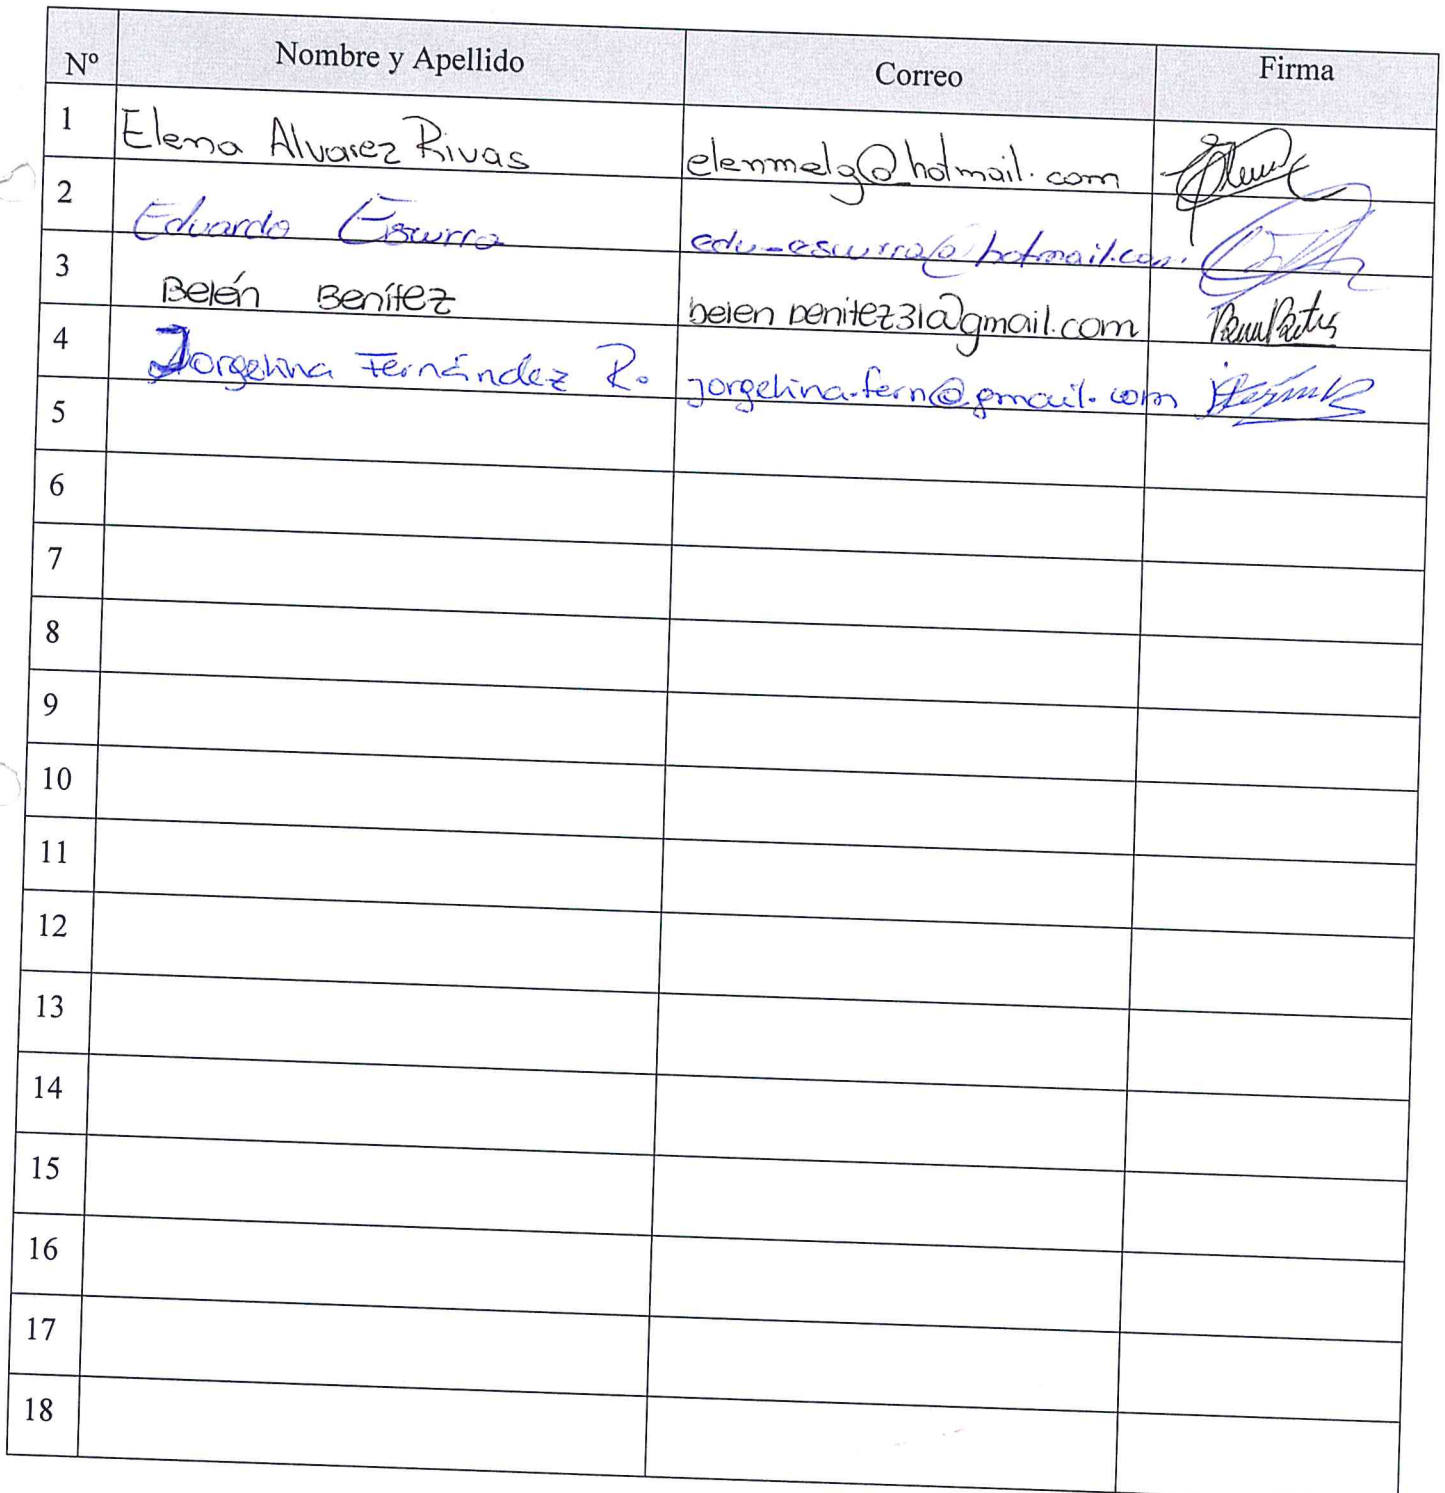 Nº Nombre y Apellido Correo Firma
1 Elena Alvarez Rivas elenmelg@hotmail.com
2 Eduardo Escurra edu-escurra@hotmail.com.
3 Belén Benítez belenbenitez31@gmail.com
4 Jorgelina Fernández R. jorgelina.fern@gmail.com
5
6
7
8
9
10
11
12
13
14
15
16
17
18